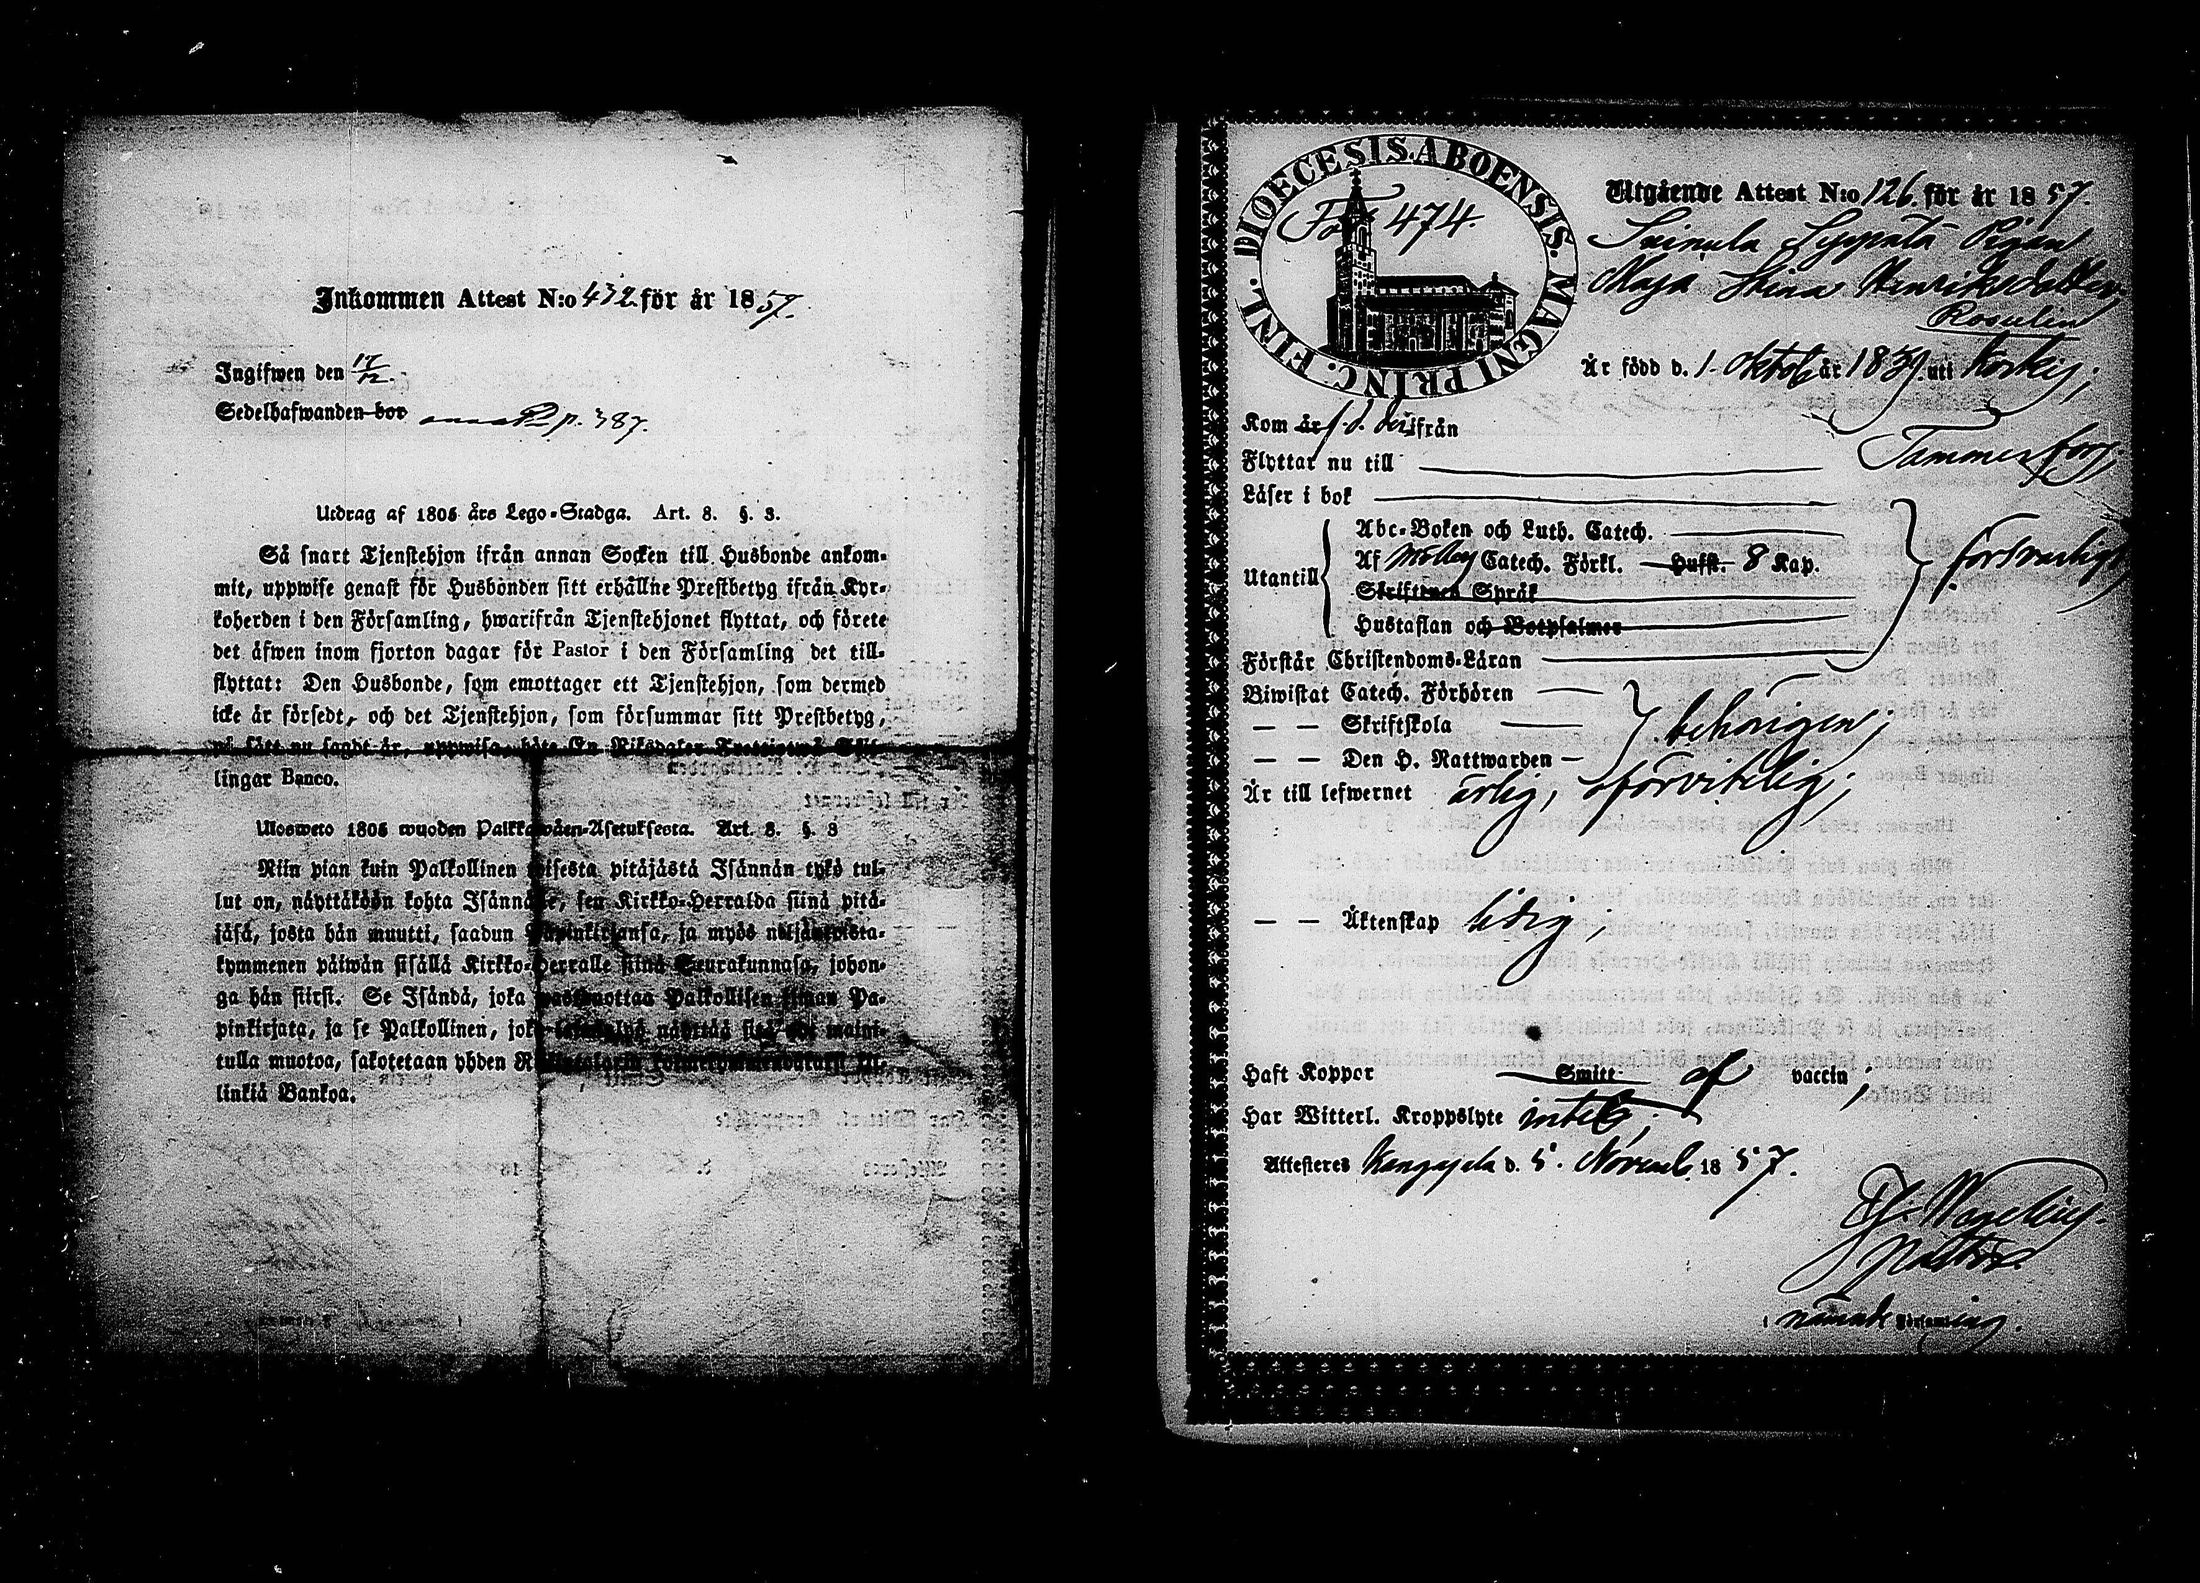 Inkommen Attest N:o 432 för år 1857.
Ingifwen den 17/12.
Sedelhafwanden bor p. 387.
Utdrag af 1805 års Lego-Stadga. Art. 8. §. 3.
Så snart Tjenstehjon ifrån annan Socken till Husbonde ankom-
mit, uppwise genast för Husbonden sitt erhållne Prestbetyg ifrån Kyr-
koherden i den Församling, hwarifrån Tjenstehjonet flyttat, och förete
det äfwen inom fjorton dagar för Pastor i den Församling det till-
flyttat: Den Husbonde, som emottager ett Tjenstehjon, som dermed
icke är försedt, och det Tjenstehjon, som försummar sitt Prestbetyg,
på sätt nu sagdt är, uppwisa, böte En Riksdaler
lingar Banco.
Ulosweto 1805 wuoden Palkkawäen-Asetuksesta. Art. 8. §. 3
Niin pian kuin Palkollinen toisesta pitäjästä Isännän tykö tul-
lut on, näyttäköön kohta Isännälle, sen Kirkko-Herralda siinä pitä-
jäsä, josta hän muutti, saadun Papinkirjansa, ja myös neljäntoista-
kymmenen päiwän sisällä Kirkko-Herralle siinä Seurakunnasa, johon-
ga hän siirsi. Se Isändä, joka wastaanottaa Palkollisen ilman Pa-
pinkirjata, ja se Palkollinen, joka näyttää sitä maini-
tulla muotoa, sakotetaan yhden
linkiä Bankoa.
DIOECESIS. ABOENSIS. MAGNI PRINC. FINL.
Fol. 474.
Utgående Attest N:o 126 för år 1857.
Pigan
Maja Stina Henriksdotter
Rosalin
Är född d. 1. Oktob. år 1839 uti
Kom år ifrån
Flyttar nu till Tammerfors;
Läser i bok
Utantill
Abc-Boken och Luth. Catech.
Af Catech. Förkl. Hufst. 8 Kap.
Skriftenes Språk
försvarligt
Hustaflan och Botpsalmer
Förstår Christendoms-Läran
Biwistat Catech. Förhören
— — Skriftskola
behörigen;
— — Den H. Nattwarden
Är till lefwernet ärlig, oförvitelig;
— — Äktenskap ledig;
Haft Koppor Smitt- af vaccin;
Har Witterl. Kroppslyte intet;
Attesteres Kangasala d. 5. Novemb. 1857.
i nämnde Församling.